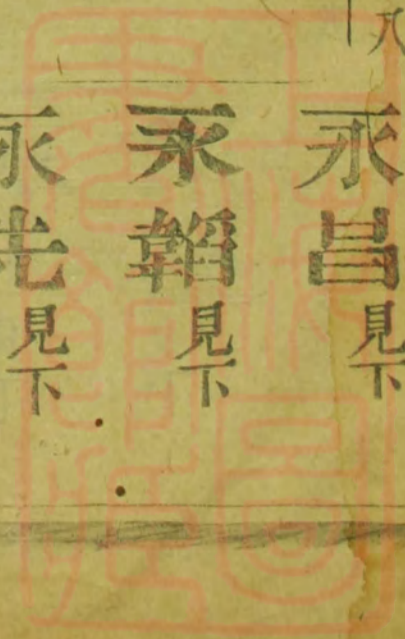 八
永昌見下
永韜見下
永先見下